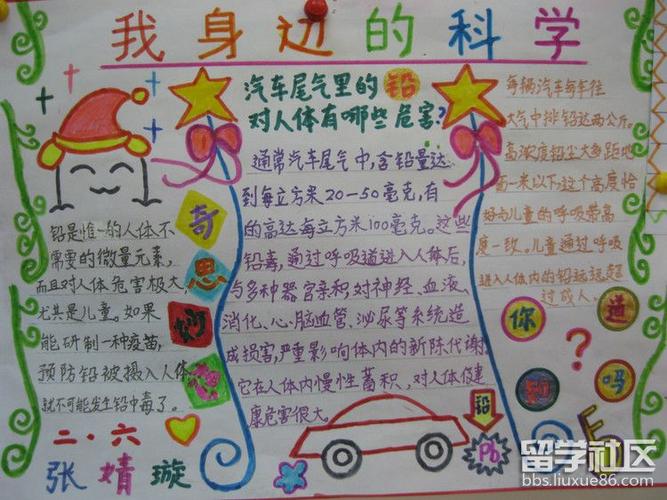 我身边的科学
铅是惟一的人体不
需要的微量元素,
而且对人体危害极大,
尤其是儿童。如果
能研制一种疫苗,
预防铅被摄入人体
就不可能发生铅中毒了。
二·六
张婧璇
奇
思
妙
汽车尾气里的铅
对人体有哪些危害?
通常汽车尾气中,含铅量达
到每立方米20—50毫克,有
的高达每立方米100毫克。这些
铅毒,通过呼吸道进入人体后,
与多种器官亲和,对神经、血液、
消化、心、脑血管、泌尿等系统造
成损害,严重影响体内的新陈代谢
它在人体内慢性蓄积,对人体健
康危害很大。
每辆汽车每年往
大气中排铅达两公斤。
高浓度铅尘大多距地
面一米以下,这个高度恰
好与儿童的呼吸带高
度一致。儿童通过呼吸
进入人体内的铅远远超
过成人。
你
知
道
吗
?
铅
Pb
留学社区
bbs.liuxue86.com